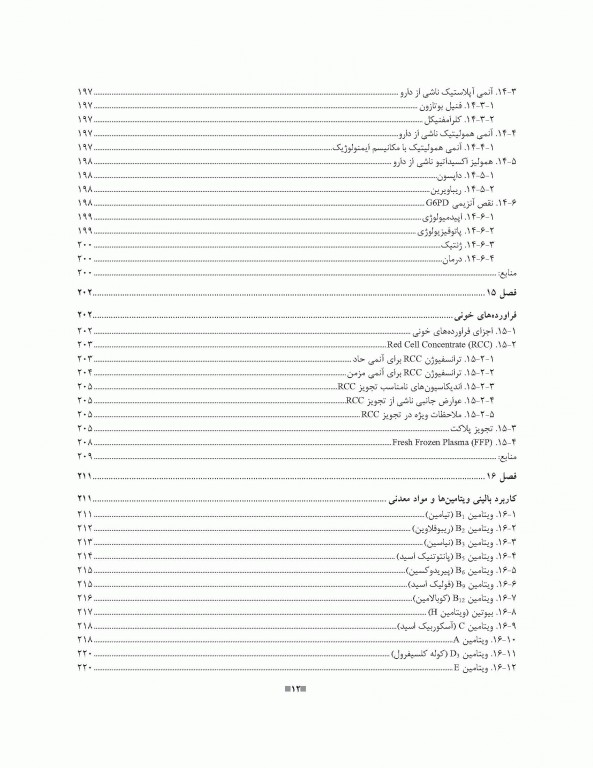 ۱۴-۳. آنمی آپلاستیک ناشی از دارو ۱۹۷
۱۴-۳-۱. فنیل بوتازون ۱۹۷
۱۴-۳-۲. کلرامفنیکل ۱۹۷
۱۴-۴. آنمی همولیتیک ناشی از دارو ۱۹۷
۱۴-۴-۱. آنمی همولیتیک با مکانیسم ایمنولوژیک ۱۹۷
۱۴-۵. همولیز اکسیداتیو ناشی از دارو ۱۹۸
۱۴-۵-۱. داپسون ۱۹۸
۱۴-۵-۲. ریباویرین ۱۹۸
۱۴-۶. نقص آنزیمی G6PD ۱۹۸
۱۴-۶-۱. اپیدمیولوژی ۱۹۹
۱۴-۶-۲. پاتوفیزیولوژی ۱۹۹
۱۴-۶-۳. ژنتیک ۲۰۰
۱۴-۶-۴. درمان ۲۰۰
منابع: ۲۰۰
فصل ۱۵ ۲۰۲
فراورده‌های خونی ۲۰۲
۱۵-۱. اجزای فراورده‌های خونی ۲۰۲
۱۵-۲. Red Cell Concentrate (RCC) ۲۰۳
۱۵-۲-۱. ترانسفیوژن RCC برای آنمی حاد ۲۰۳
۱۵-۲-۲. ترانسفیوژن RCC برای آنمی مزمن ۲۰۴
۱۵-۲-۳. اندیکاسیون‌های نامناسب تجویز RCC ۲۰۵
۱۵-۲-۴. عوارض جانبی ناشی از تجویز RCC ۲۰۵
۱۵-۲-۵. ملاحظات ویژه در تجویز RCC ۲۰۵
۱۵-۳. تجویز پلاکت ۲۰۵
۱۵-۴. Fresh Frozen Plasma (FFP) ۲۰۸
منابع: ۲۰۹
فصل ۱۶ ۲۱۱
کاربرد بالینی ویتامین‌ها و مواد معدنی ۲۱۱
۱۶-۱. ویتامین B₁ (تیامین) ۲۱۱
۱۶-۲. ویتامین B₂ (ریبوفلاوین) ۲۱۲
۱۶-۳. ویتامین B₃ (نیاسین) ۲۱۳
۱۶-۴. ویتامین B₅ (پانتوتنیک اسید) ۲۱۴
۱۶-۵. ویتامین B₆ (پیریدوکسین) ۲۱۵
۱۶-۶. ویتامین B₉ (فولیک اسید) ۲۱۵
۱۶-۷. ویتامین B₁₂ (کوبالامین) ۲۱۶
۱۶-۸. بیوتین (ویتامین H) ۲۱۷
۱۶-۹. ویتامین C (آسکوربیک اسید) ۲۱۸
۱۶-۱۰. ویتامین A ۲۱۸
۱۶-۱۱. ویتامین D₃ (کوله کلسیفرول) ۲۲۰
۱۶-۱۲. ویتامین E ۲۲۰
۱۲